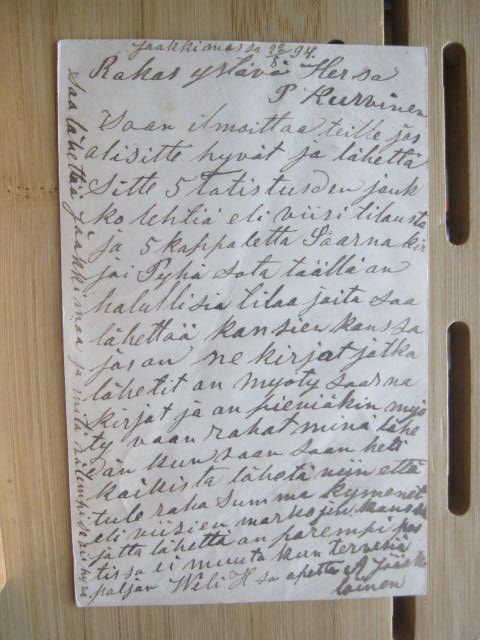 Jaakkimassa 22/8 94.
Rakas ystävä Herra
P Kurvinen
Saan ilmoittaa teille jos
alisitte hyvät ja lähettä
sitte 5 Totistusden jouk
ko lehtiä eli viisi tilausta
ja 5 kappaletta Saarna kir
joi Pyhä sota täällä an
halullisia tilaajoita saa
lähettää kansien kanssa
jos an ne kirjat jotka
lähetit an myöty saarna
kirjat ja an pieniäkin myö
ty vaan rahat minä lähe
dän kun saan saan heti
kaikista lähetä niin että
tule raha summa kymenet
eli viisien markojen kanssa
jätta lähettä an parempi pos
tissa ei muuta kun terveisiä
paljän Weli H sa apetta A Jääske
läinen
Saa lähettää Jaakkimaa ja mutä